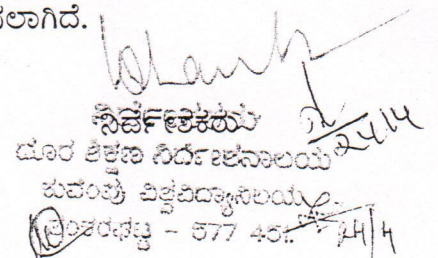 ಲಾಗಿದೆ.
ನಿರ್ದೇಶಕರು
24/4
ದೂರ ಶಿಕ್ಷಣ ನಿರ್ದೇಶನಾಲಯ
ಕುವೆಂಪು ವಿಶ್ವವಿದ್ಯಾನಿಲಯ
ಶಂಕರಘಟ್ಟ - 577 451.
24/4